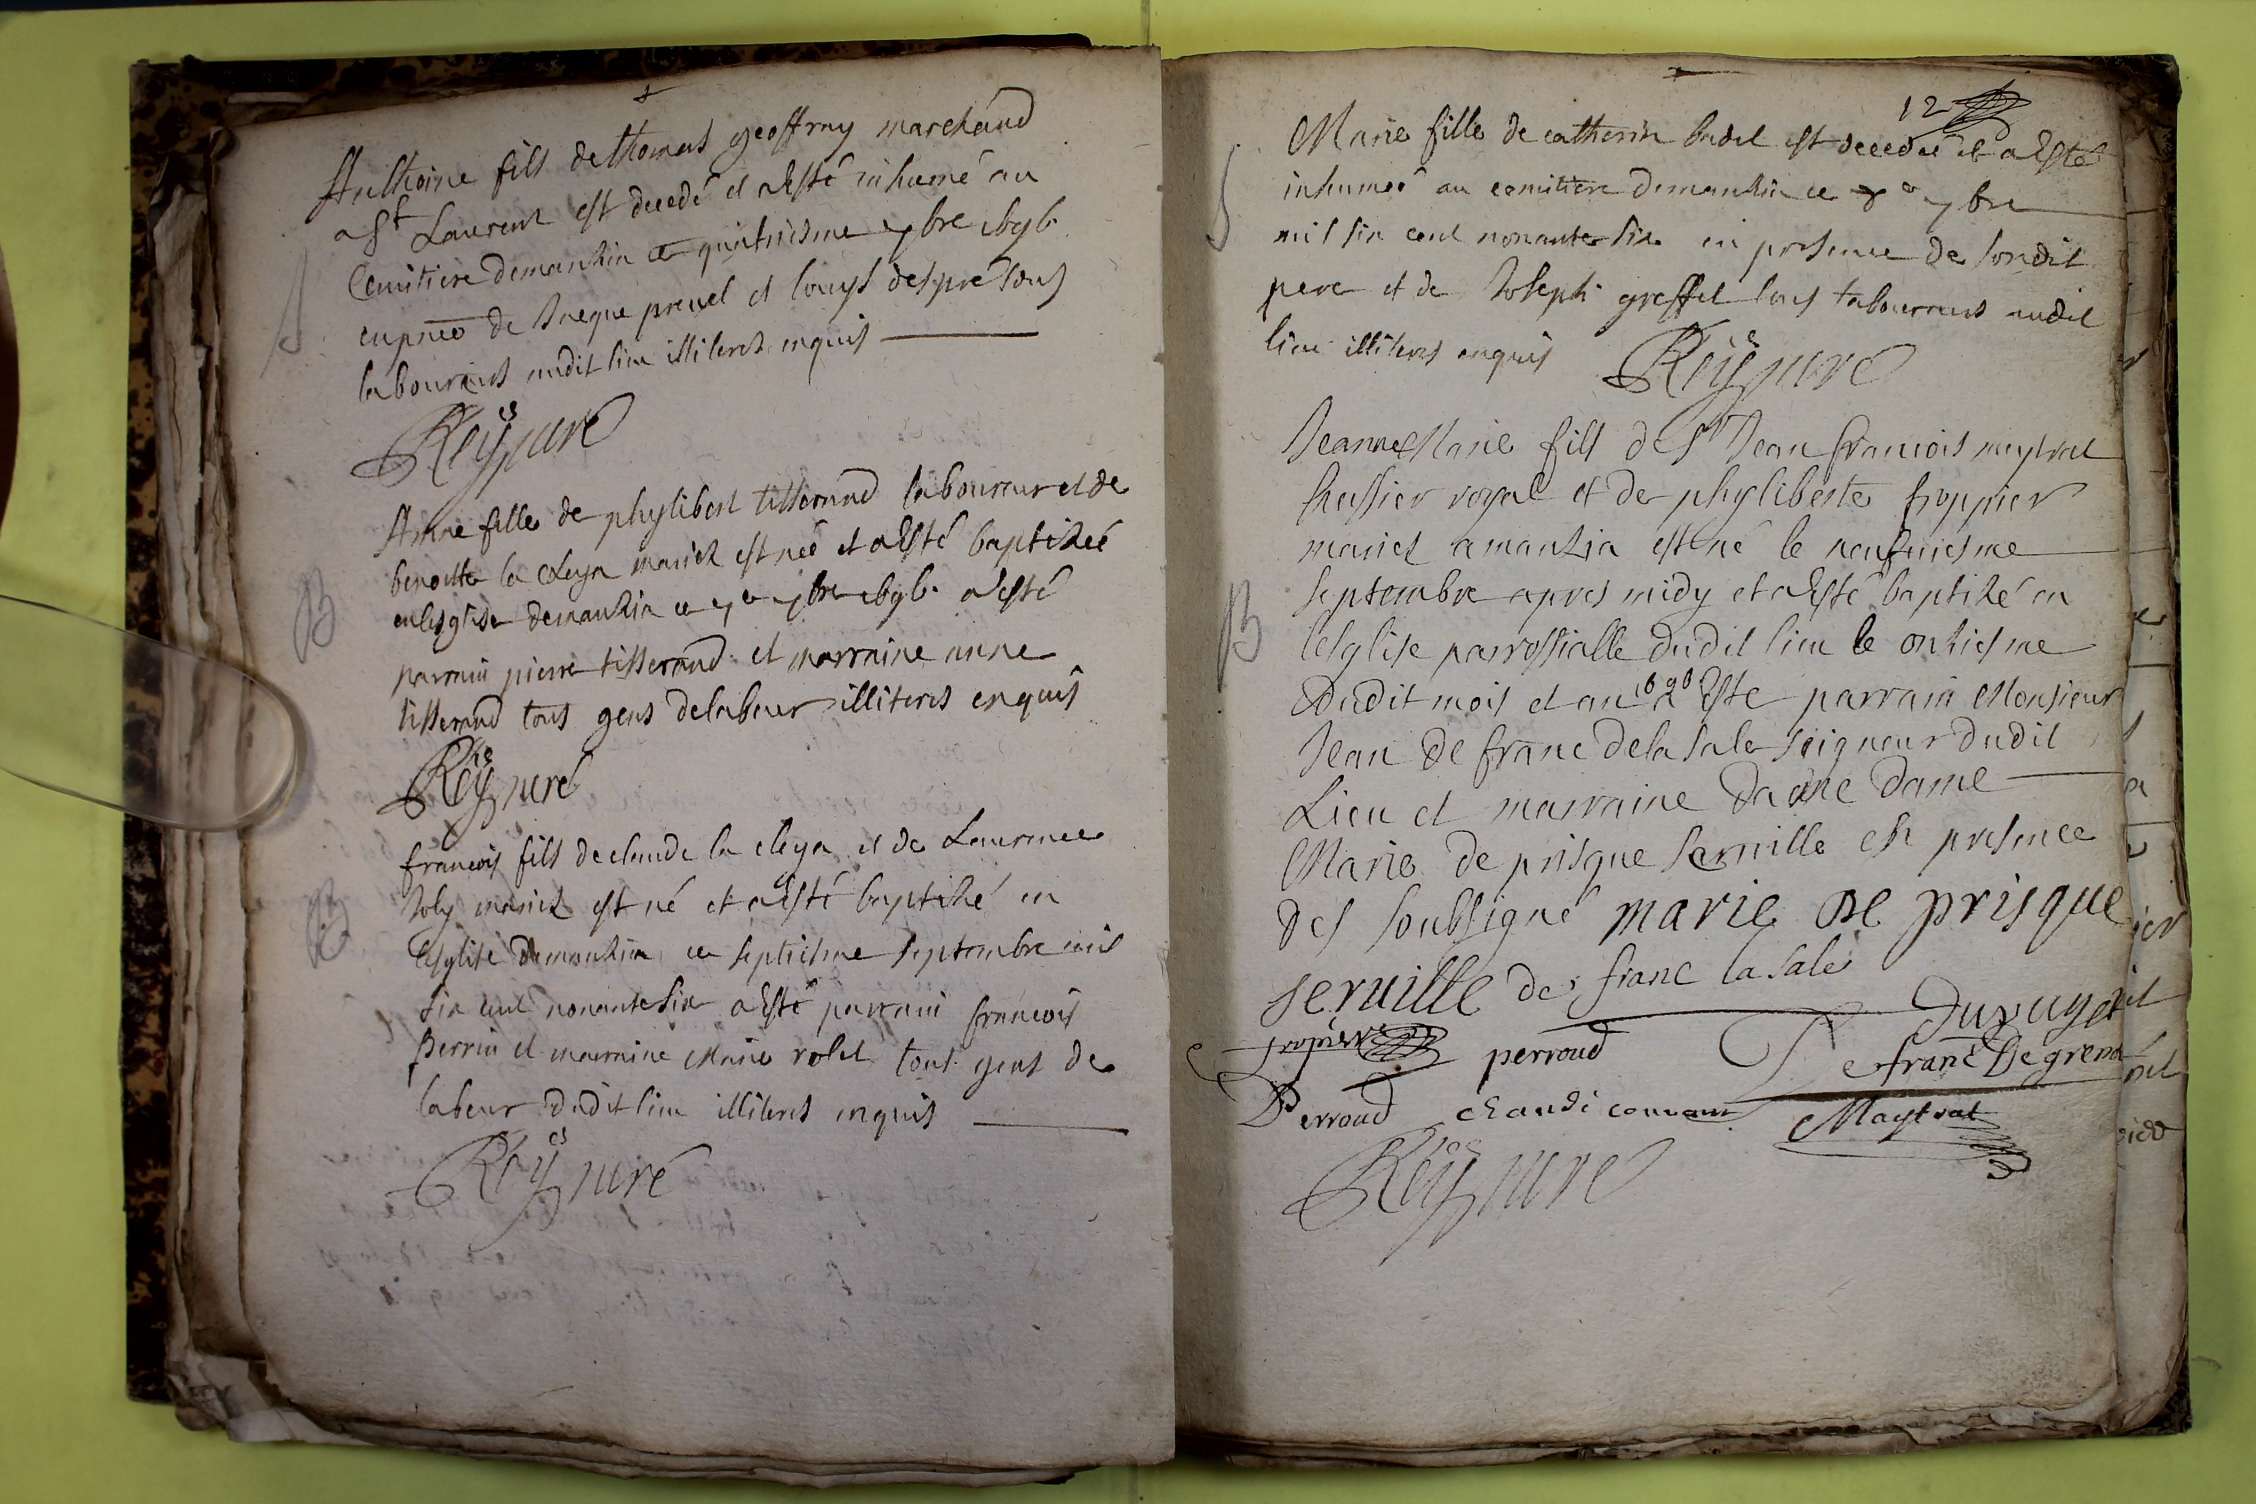 Anthoine fils de thomas geoffray marchand
a St Laurent est decedé et a Esté inhumé au
Cemitiere demanzia ce quatriesme 7bre
en pnce de Jaque et Louys despré tous
laboureurs audit lieu illiteres enquis
Reÿ curé
S
Anne fille de phylibert tisserand laboureur et de
benoitte la cleya mariez est née et a Esté baptizée
en lesglise demanzia ce 7e 7bre a esté
parrain pierre tisserand et marraine anne
tisserand tous gens de labeur illiteres enquis
B
Reÿ curé
francois fils de claude la cleya et de Laurence
Joly mariez est né et a Esté baptizé en
lesglise demanzia ce septiesme septembre mil
six cent nonante six a Esté parrain francois
perrin et marraine Marie rolet tout gens de
labeur dudit lieu illiteres enquis
B
Reÿ curé
12
Marie fille de catherin est decedée et a Esté
inhumée au cemitiere demanzia ce 7bre
mil six cent nonante six en presence de sondit
pere et de Joseph greffet tous laboureurs audit
lieu illiteres enquis Reÿ curé
S
Jeanne Marie fils de Sr Jean francois maytrat
huissier royal et de phyliberte froppier
mariez a manzia est né le neufuiesme
septembre apres midy et a Esté baptizé en
lesglise parrossialle dudit lieu le onziesme
dudit mois et an 1696 a Este parrain Monsieur
Jean de franc de la sale seigneur dudit
Lieu et marraine dame
Marie de prisque seruille en presence
des soubsigné marie de prisque
seruille de franc la sale
B
dupuget
perroud franc De grena
Perroud Maytrat
Reÿ curé